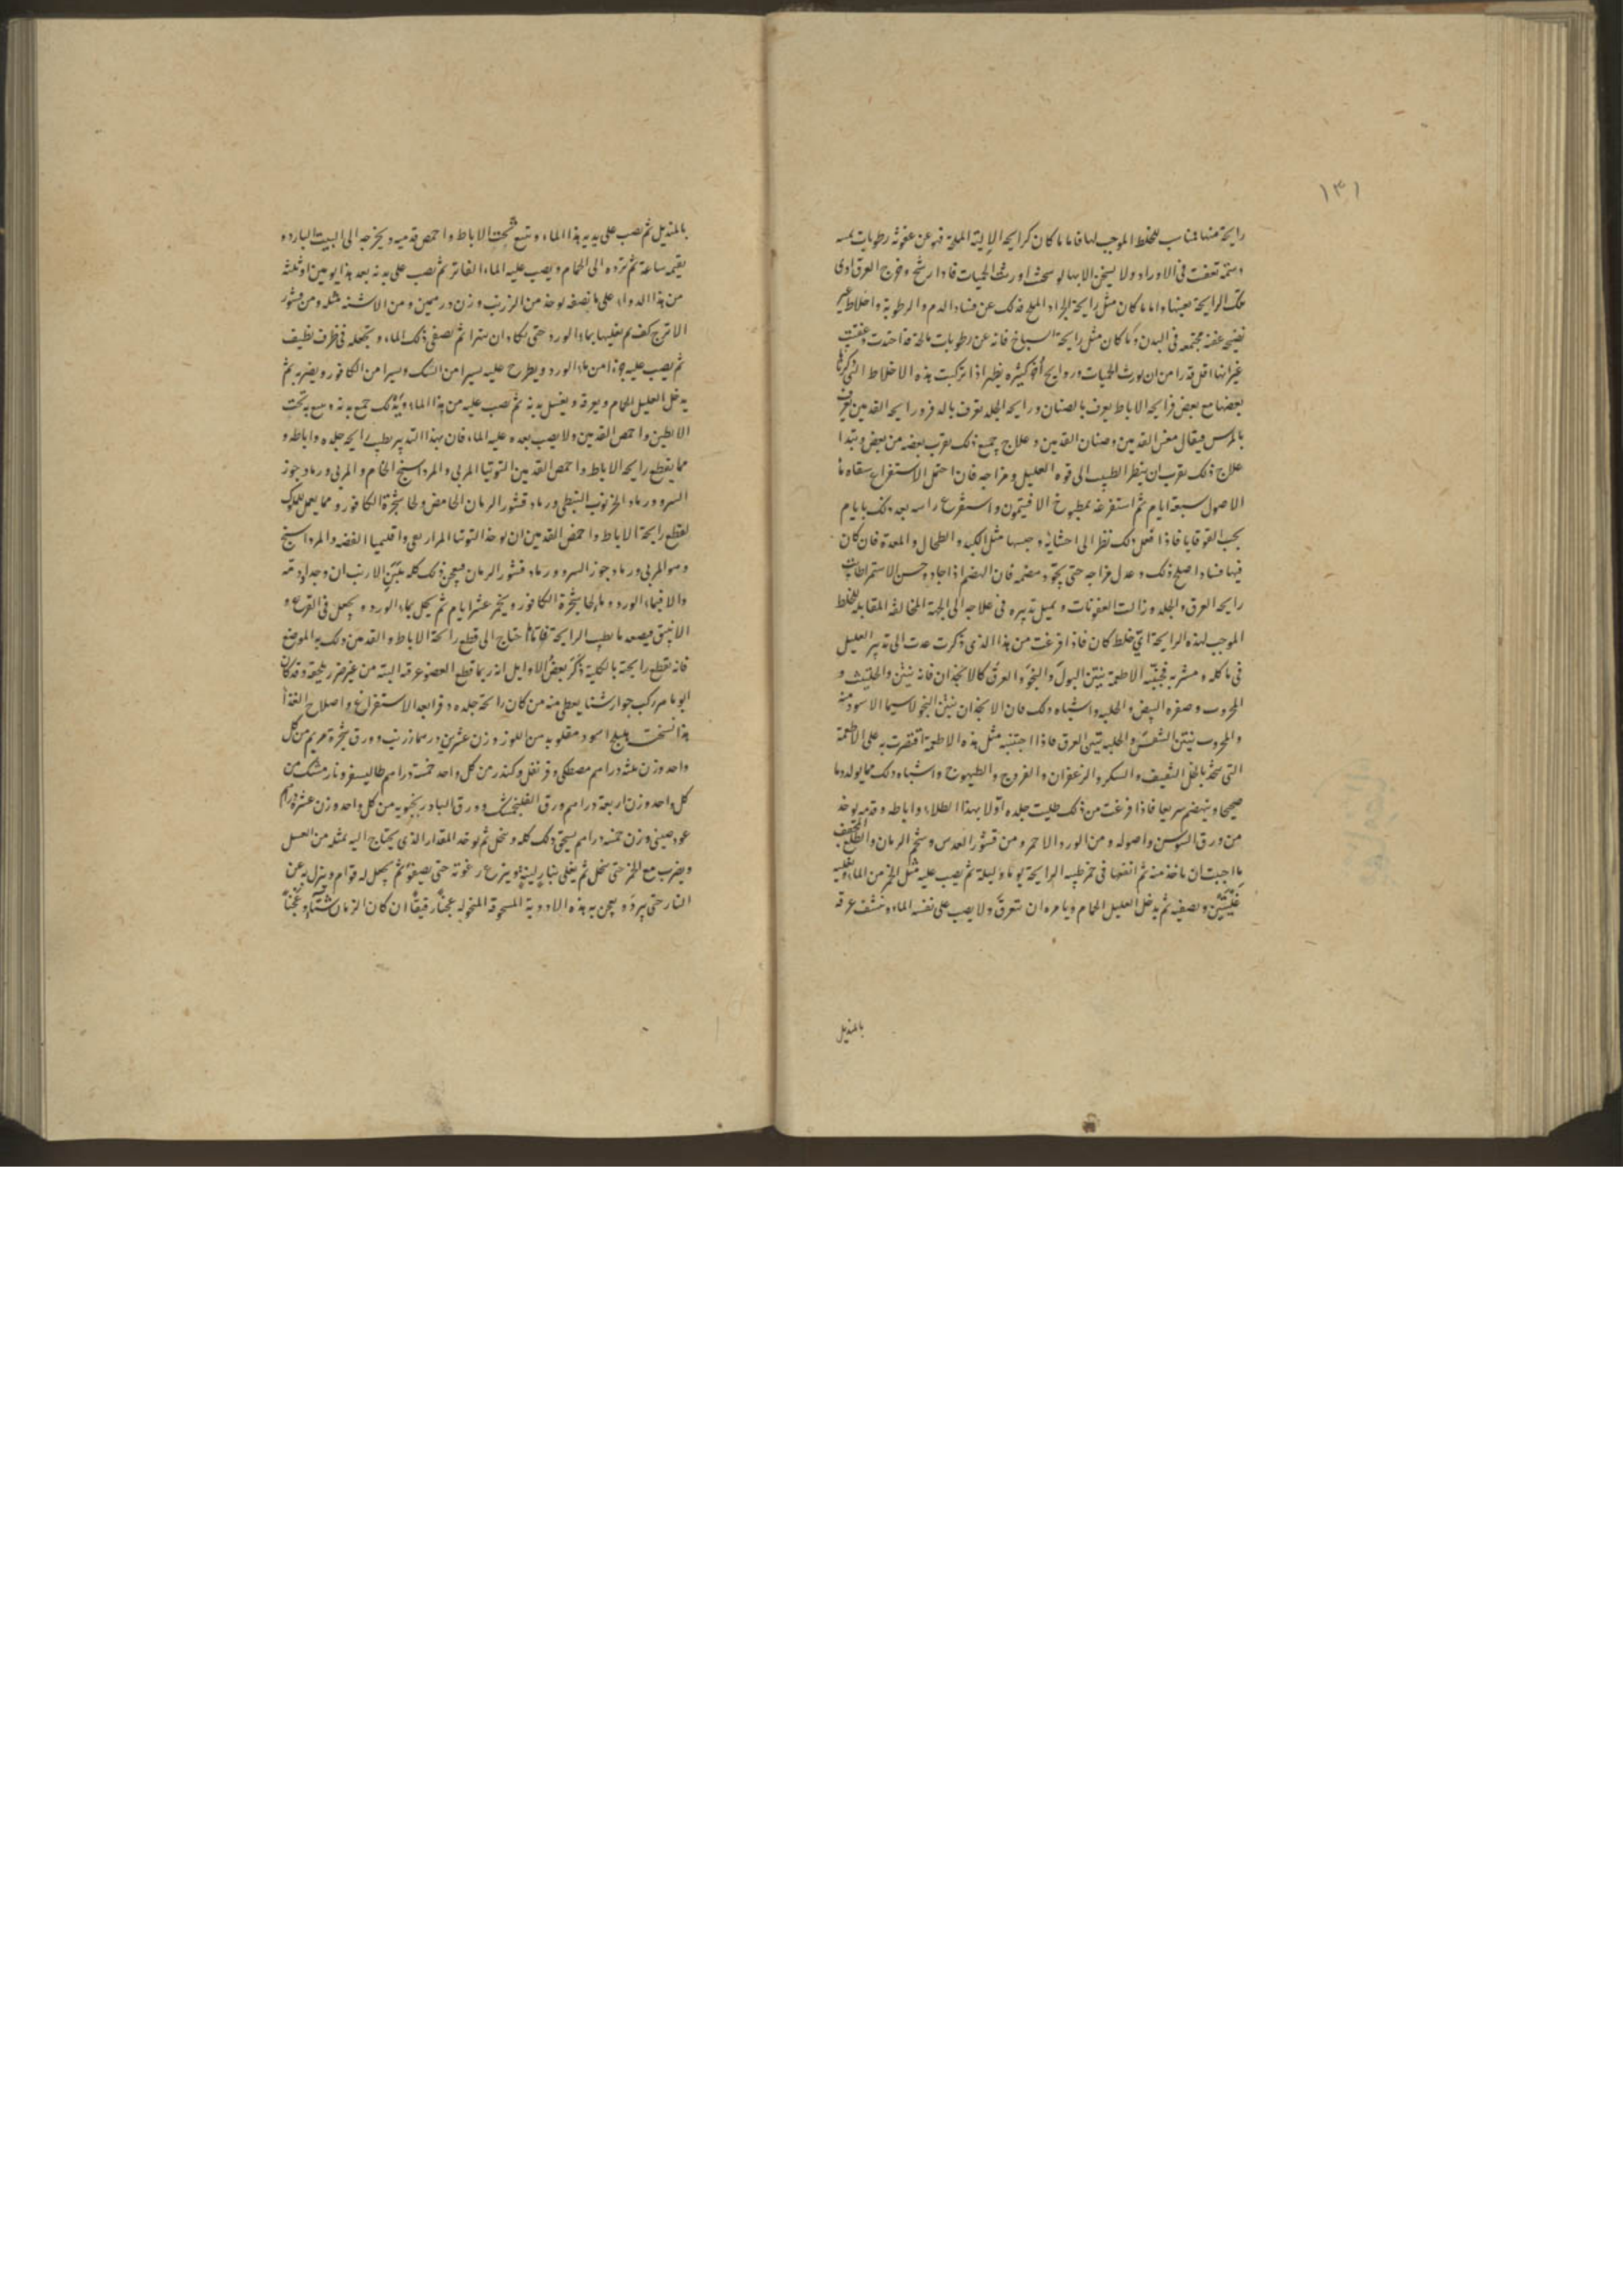 ١٣١
رايحة منها مناسب للخلط الموجب لها فاما ما كان كرايحة الالية المملحة فهو عن عفونة رطوبات
دسمة تعفنت في الاوراد ولا يسخن الابها
تلك الرايحة بعينها واما ما كان مثل رايحة الجراد المملح فذلك عن فساد الدم والرطوبة واخلاط غير
نضيجة عفنة مجتمعة في البدن وما كان مثل رايحة السباخ فانه عن رطوبات مالحة قد احتدت وعفنت
غير انها اقل قدرا من ان يورث الحميات وروايح أخر كثيره يظهر اذا تركبت هذه الاخلاط التي ذكرناها
بعضها مع بعض فرايحة الاباط يعرف بالصنان ورايحة الجلد تعرف بالدفر ورايحة القدمين تعرف
فيقال القدمين وصنان القدمين وعلاج جميع ذلك يقرب بعضه من بعض ويبتدا
علاج ذلك بقرب ان ينظر الطبيب الى قوه العليل ومزاجه فان احتمل الاستفراغ سقاه ماء
الاصول سبعة ايام ثم استفرغه بمطبوخ الافتيمون واستفرغ راسه بعد ذلك بايام
بحب القوقايا فاذا فعل ذلك نظر الى احشايه وحبسها مثل الكبد والطحال والمعدة فان كان
فيها فساد اصلح ذلك وعدل مزاجه حتى يجود هضمه فان الهضم اذا جاد وحسن الاستمرا طابت
رايحة العرق والجلد وزالت العفونات ويميل تدبيره في علاجه الى الجهة المخالفة المقابله للخلط
الموجب لهذه الرايحة اي خلط كان فاذا فرغت من هذا الذي ذكرت عدت الى تدبير العليل
في ماكله ومشربه فجنبه الاطعمة ينتن البول والنجو والعرق كالانجذان فانه ينتن والحلتيت و
المحروت وصفره البيض والحلبه واشباه ذلك فان الانجذان ينتن النجو لاسيما الاسود منه
والمحروت ينتن والحلبه ينتن العرق فاذا اجتنبه مثل هذه الاطعمة اقتصرت به على الاطعمة
التي تتخذ بالخل الثقيف والسكر والزعفران والفروج والطيهوج واشباه ذلك مما يولد دما
صحيحا وينهضم سريعا فاذا فرغت من ذلك طليت جلده اولا بهذا الطلاء واباطه وقدميه يوخذ
من ورق السوسن واصوله ومن الورد الاحمر ومن قشور العدس وشحم الرمان والطلع المجفف
ما احببت ان ياخذ منه ثم انقعها في خمر طيبه الرايحة يوما وليلة ثم يصب عليه مثل الخمر من الماء ويغليه
غليتين ويصفيه ثم يدخل العليل الحمام ويامره ان يتعرق ولا يصب على نفسه الماء وينشف عرقه
بالمنديل
بالمنديل ثم يصب على بدنه هذا الماء ويتبع تحت الاباط واخمص قدميه ويخرجه الى البيت البارد و
يقيمه ساعة ثم ترده الى الحمام ويصب عليه الماء الفاتر ثم يصب على بدنه بعد هذا يومين او ثلثة
من هذا الدواء على ما نصفه يوخذ من الزرنب وزن درهمين ومن الاشنه مثله ومن قشور
الاترج كف ثم يغليها بماء الورد حتى يكاد ان يتهرا ثم يصفي ذلك الماء ويجعله في ظرف نظيف
ثم يصب عليه جزءا من ماء الورد ويطرح عليه يسيرا من السك ويسيرا من الكافور ويضربه ثم
يدخل العليل الحمام ويعرقه ويغسل بدنه ثم يصب عليه من هذا الماء ويدلك جميع بدنه ويتبع به تحت
الابطين واخمص القدمين ولا يصب بعده عليه الماء فان بهذا التدبير يطيب رايحة جلده واباطه و
مما يقطع رايحة الاباط واخمص القدمين التوتيا المربي والمرداسنج الخام والمربي ورماد جوز
السرو ورماد الخرنوب النبطي ورماد قشور الرمان الحامض ولحا شجرة الكافور ومما يعمل للملوك
لقطع رايحة الاباط واخمص القدمين ان يوخذ التوتيا واقليميا الفضه والمرداسنج
وهو المربي ورماد جوز السرو ورماد قشور الرمان فيعجن ذلك كله الارنب ان وجد او دمه
والا فبماء الورد وماء لحا شجرة الكافور ويخمر عشر ايام ثم يحل بماء الورد ويجعل في القرع و
الانبيق فيصعد ما يطيب الرايحة فاذا احتاج الى قطع رايحة الاباط والقدمين دلك به الموضع
فانه يقطع رايحته بالكلية ذكر بعض الاوايل انه ربما قطع العضو عرقه البته من غير ضرر يلحقه وقد كان
ابو ماهر ركب جوارشنا يعطى منه من كان رايحة جلده دفرا بعد الاستفراغ واصلاح الغذا
هذا نسخته هليلج اسود مقلو بدهن اللوز وزن عشرين درهما زرنب وورق شجرة مريم من كل
واحد وزن ثلثة دراهم مصطكي وقرنفل وكندر من كل واحد خمسة دراهم طاليسفر ونارمشك من
كل واحد وزن اربعة دراهم ورق الفلنجمشك وورق البادرنجبويه من كل واحد وزن عشرة دراهم
عود صيني وزن خمسة دراهم يسحق ذلك كله وينخل ثم يوخذ المقدار الذي يحتاج اليه بمثله من العسل
ويضرب مع الخمر حتى ينحل ثم يغلى بنار لينة وينزع رغوته حتى يصفو ثم يجعل له قوام وينزل به عن
النار حتى يبرد ويعجن به هذه الادوية المسحوقة المنخولة عجنا رقيقا ان كان الزمان شتاء وعجنا